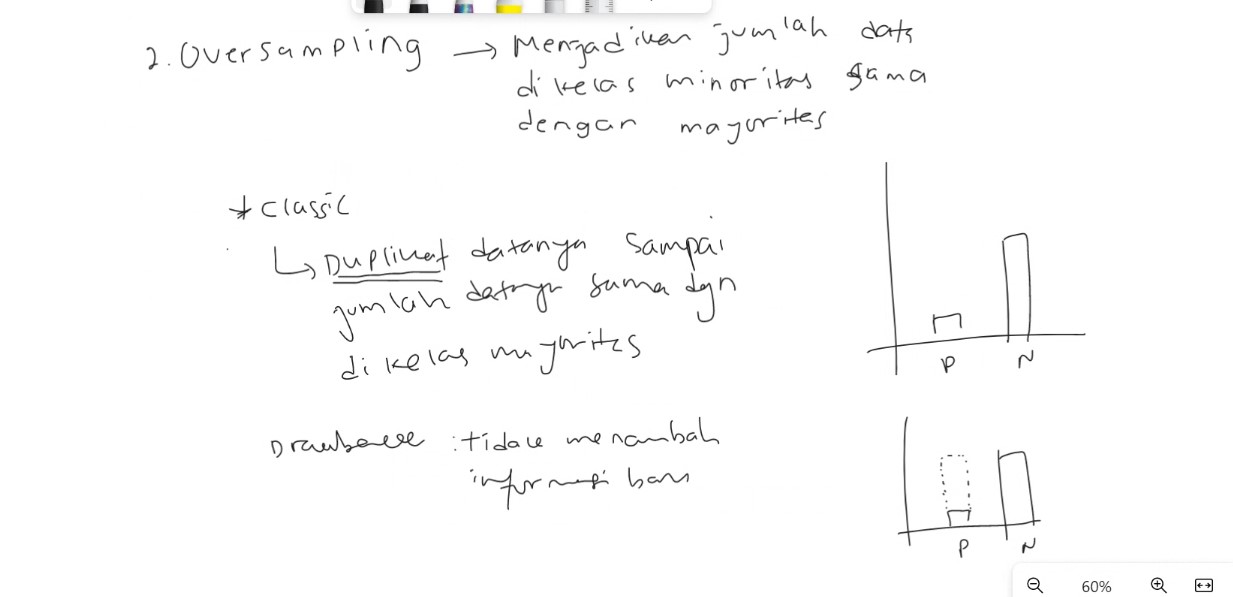 2. Oversampling → Menjadikan jumlah data
di kelas minoritas sama
dengan mayoritas
* Classic
↳ Duplikat datanya sampai
jumlah datanya sama dgn
di kelas mayoritas
P N
Drawback : tidak menambah
informasi baru
P N
60%